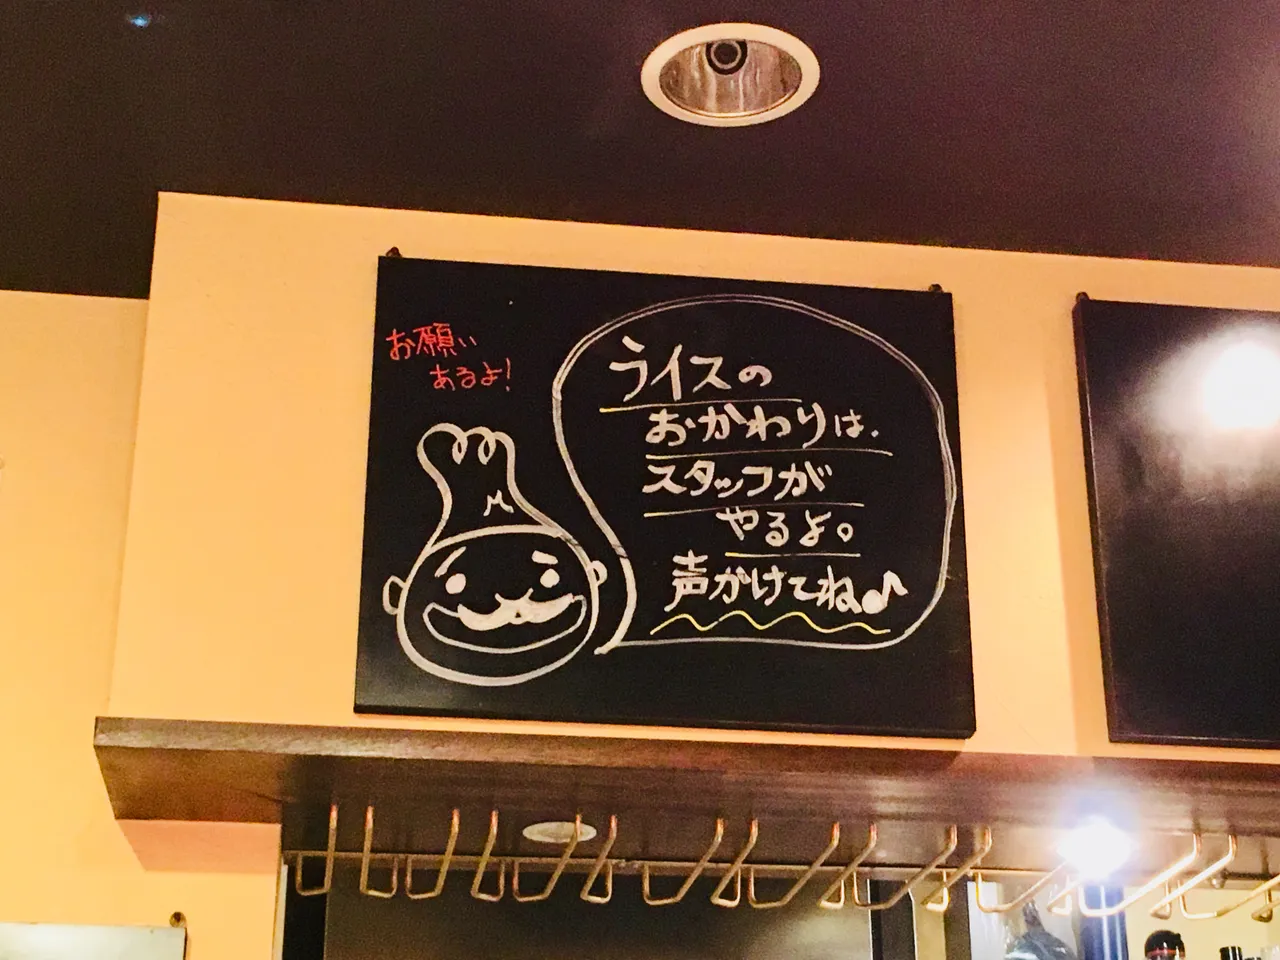 お願い
あるよ!
ライスの
おかわりは、
スタッフが
やるよ。
声かけてね♪